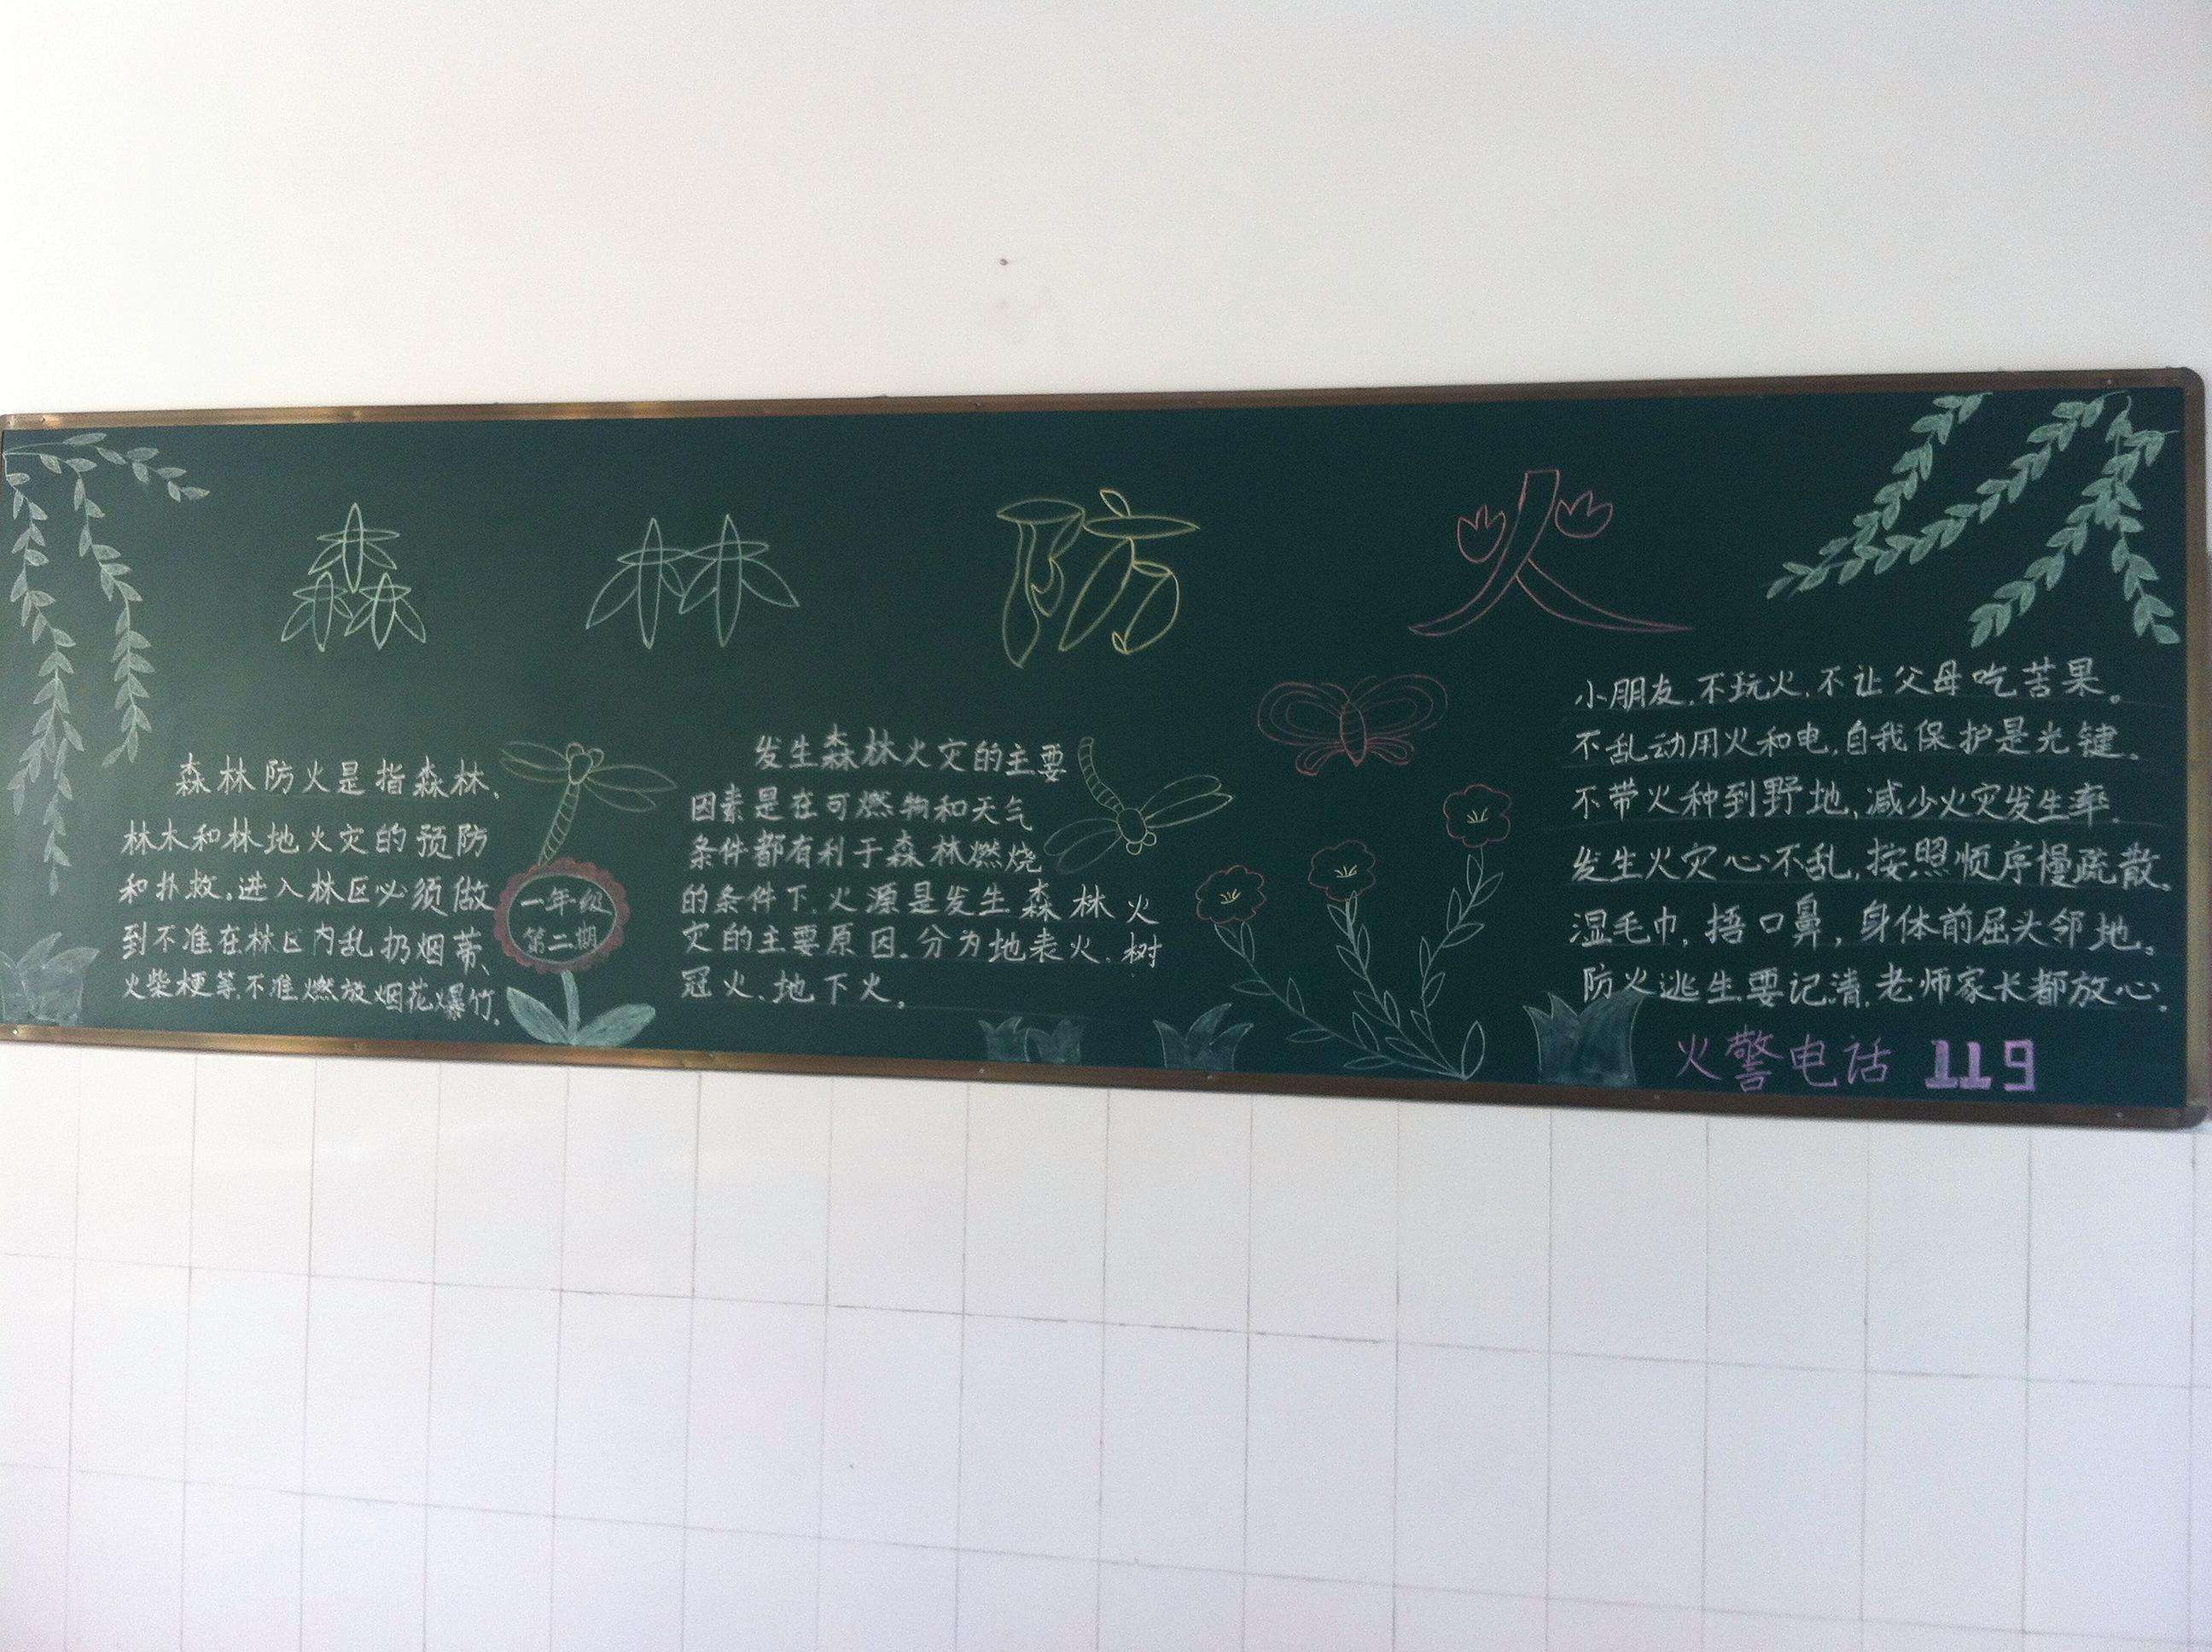 森林防火
森林防火是指森林、
林木和林地火灾的预防
和扑救。进入林区必须做
到不准在林区内乱扔烟蒂、
火柴梗等,不准燃放烟花爆竹。
一年级
第二期
发生森林火灾的主要
因素是在可燃物和天气
条件都有利于森林燃烧
的条件下,火源是发生森林火
灾的主要原因。分为地表火、树
冠火、地下火。
小朋友,不玩火,不让父母吃苦果。
不乱动用火和电,自我保护是光键。
不带火种到野地,减少火灾发生率。
发生火灾心不乱,按照顺序慢疏散。
湿毛巾,捂口鼻,身体前屈头邻地。
防火逃生要记清,老师家长都放心。
火警电话 119